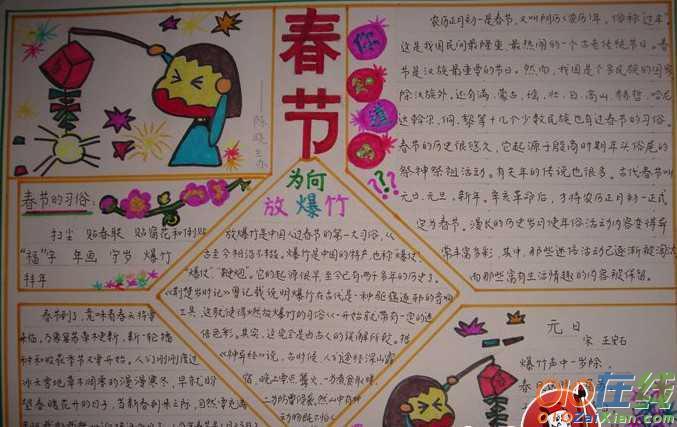 春节
陈晓兰办
你
知
道
???
农历正月初一是春节,又叫阴历(农历)年,俗称过年。
这是我国民间最隆重、最热闹的一个古老传统节日。春
节是汉族最重要的节日。然而,我国是个多民族的国家
除汉族外,还有满、蒙古、瑶、壮、白、高山、赫哲、哈尼
达斡尔、侗、黎等十几个少数民族也有过春节的习俗。
春节的历史很悠久,它起源于殷商时期年头俗尾的
祭神祭祖活动。有关年的传说也很多。古代春节叫
元日、元旦、新年。辛亥革命后,才将农历正月初一正式
定为春节。漫长的历史岁月使年俗活动内容变得异
常丰富多彩,其中,那些迷信活动已逐渐被淘汰
而那些富有生活情趣的内容被保留。
春节的习俗:
扫尘 贴春联 贴窗花和倒贴
“福”字 年画 守岁 爆竹
拜年
为何
放爆竹
放爆竹是中国人过春节的第一大习俗,从
古至今相沿不辍。爆竹是中国的特产,也称“爆仗”、
“炮仗”、“鞭炮”。它的起源很早,至今已有两千多年的历史了。
《荆楚岁时记》曾记载说明爆竹在古代是一种驱瘟逐邪的音响
工具,这就使得燃放爆竹的习俗从一开始就带有一定的迷
信色彩。其实,这完全是由古人的误解所致。据
《神异经》说,古时候,人们途经深山露
宿,晚上要点篝火,一为煮食取暖,
二为防野兽侵袭,然山中有种
动物既不怕人
春节到了,意味着春天将要
来临,万象复苏草木更新,新一轮播
种和收获季节又要开始。人们刚刚度过
冰天雪地草木凋零的漫漫寒冬,早就盼
望春暖花开的日子,当新春到来之际,自然要充满
元日
宋 王安石
爆竹声中一岁除,
春
QQ在线
QQZaiXian.Com